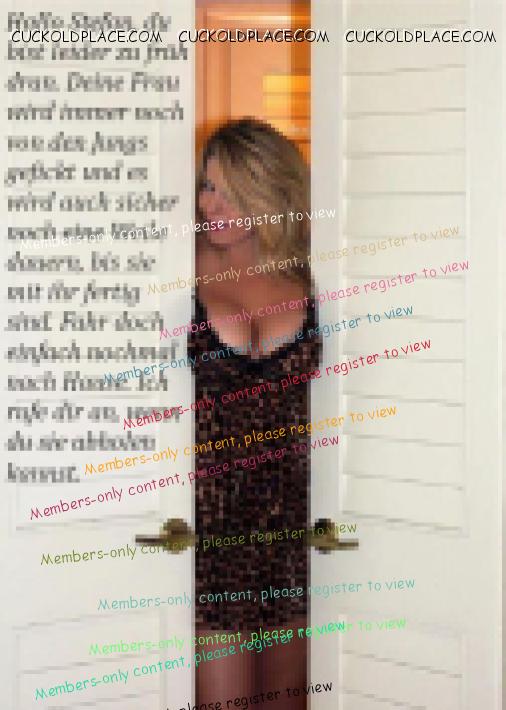 Hallo Stefan, du
CUCKOLDPLACE.COM CUCKOLDPLACE.COM CUCKOLDPLACE.COM
bist leider zu früh
dran. Deine Frau
wird immer noch
von den Jungs
gefickt und es
wird auch sicher
noch eine
Members-only content, please register to view
dauern, bis sie
Members-only content, please register to view
mit ihr fertig
Members-only content, please register to view
sind. Fahr doch
Members-only content, please register to view
einfach nochmal
Members-only content, please register to view
nach Hause. Ich
rufe dir an, wenn
Members-only content, please register to view
du sie abholen
Members-only content, please register to view
kannst.
Members-only content, please register to view
Members-only content, please register to view
Members-only content, please register to view
Members-only content, please register to view
please register to view